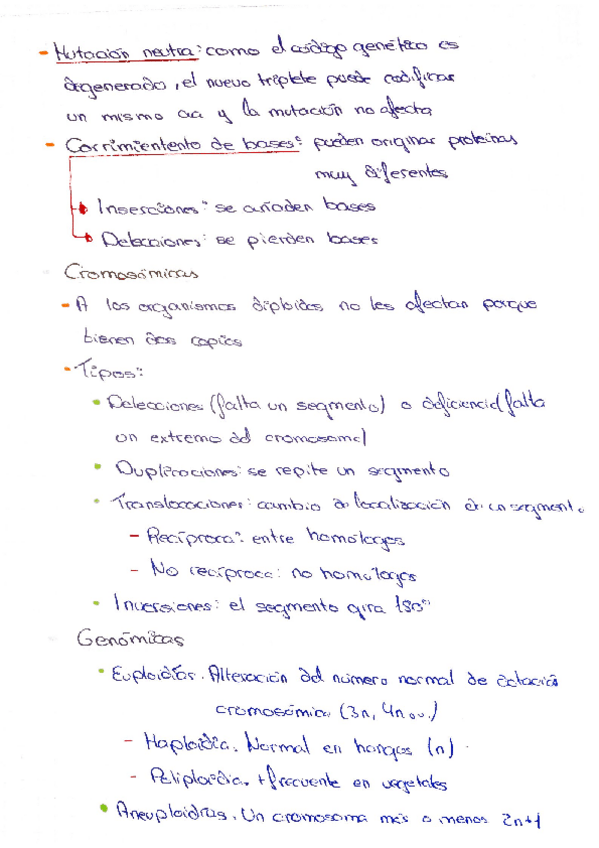 - Mutación neutra: como el código genético es
degenerado, el nuevo triplete puede codificar
un mismo aa y la mutación no afecta
- Corrimientento de bases: pueden originar proteínas
muy diferentes
Inserciones: se añaden bases
Delecciones: se pierden bases
Cromosómicas
- A los organismos diploides no les afectan porque
tienen dos copias
· Tipos:
• Delecciones (falta un segmento) o deficiencia (falta
un extremo del cromosoma)
• Duplicaciones: se repite un segmento
• Translocaciones: cambio de localización de un segmento
- Recíproca: entre homólogos
- No recíproca: no homólogos
• Inversiones: el segmento gira 180°
Genómicas
• Euploidías. Alteración del número normal de dotación
cromosómica (3n, 4n...)
- Haploidía. Normal en hongos (n).
- Poliploidía. + frecuente en vegetales
• Aneuploidías. Un cromosoma más o menos 2n+1